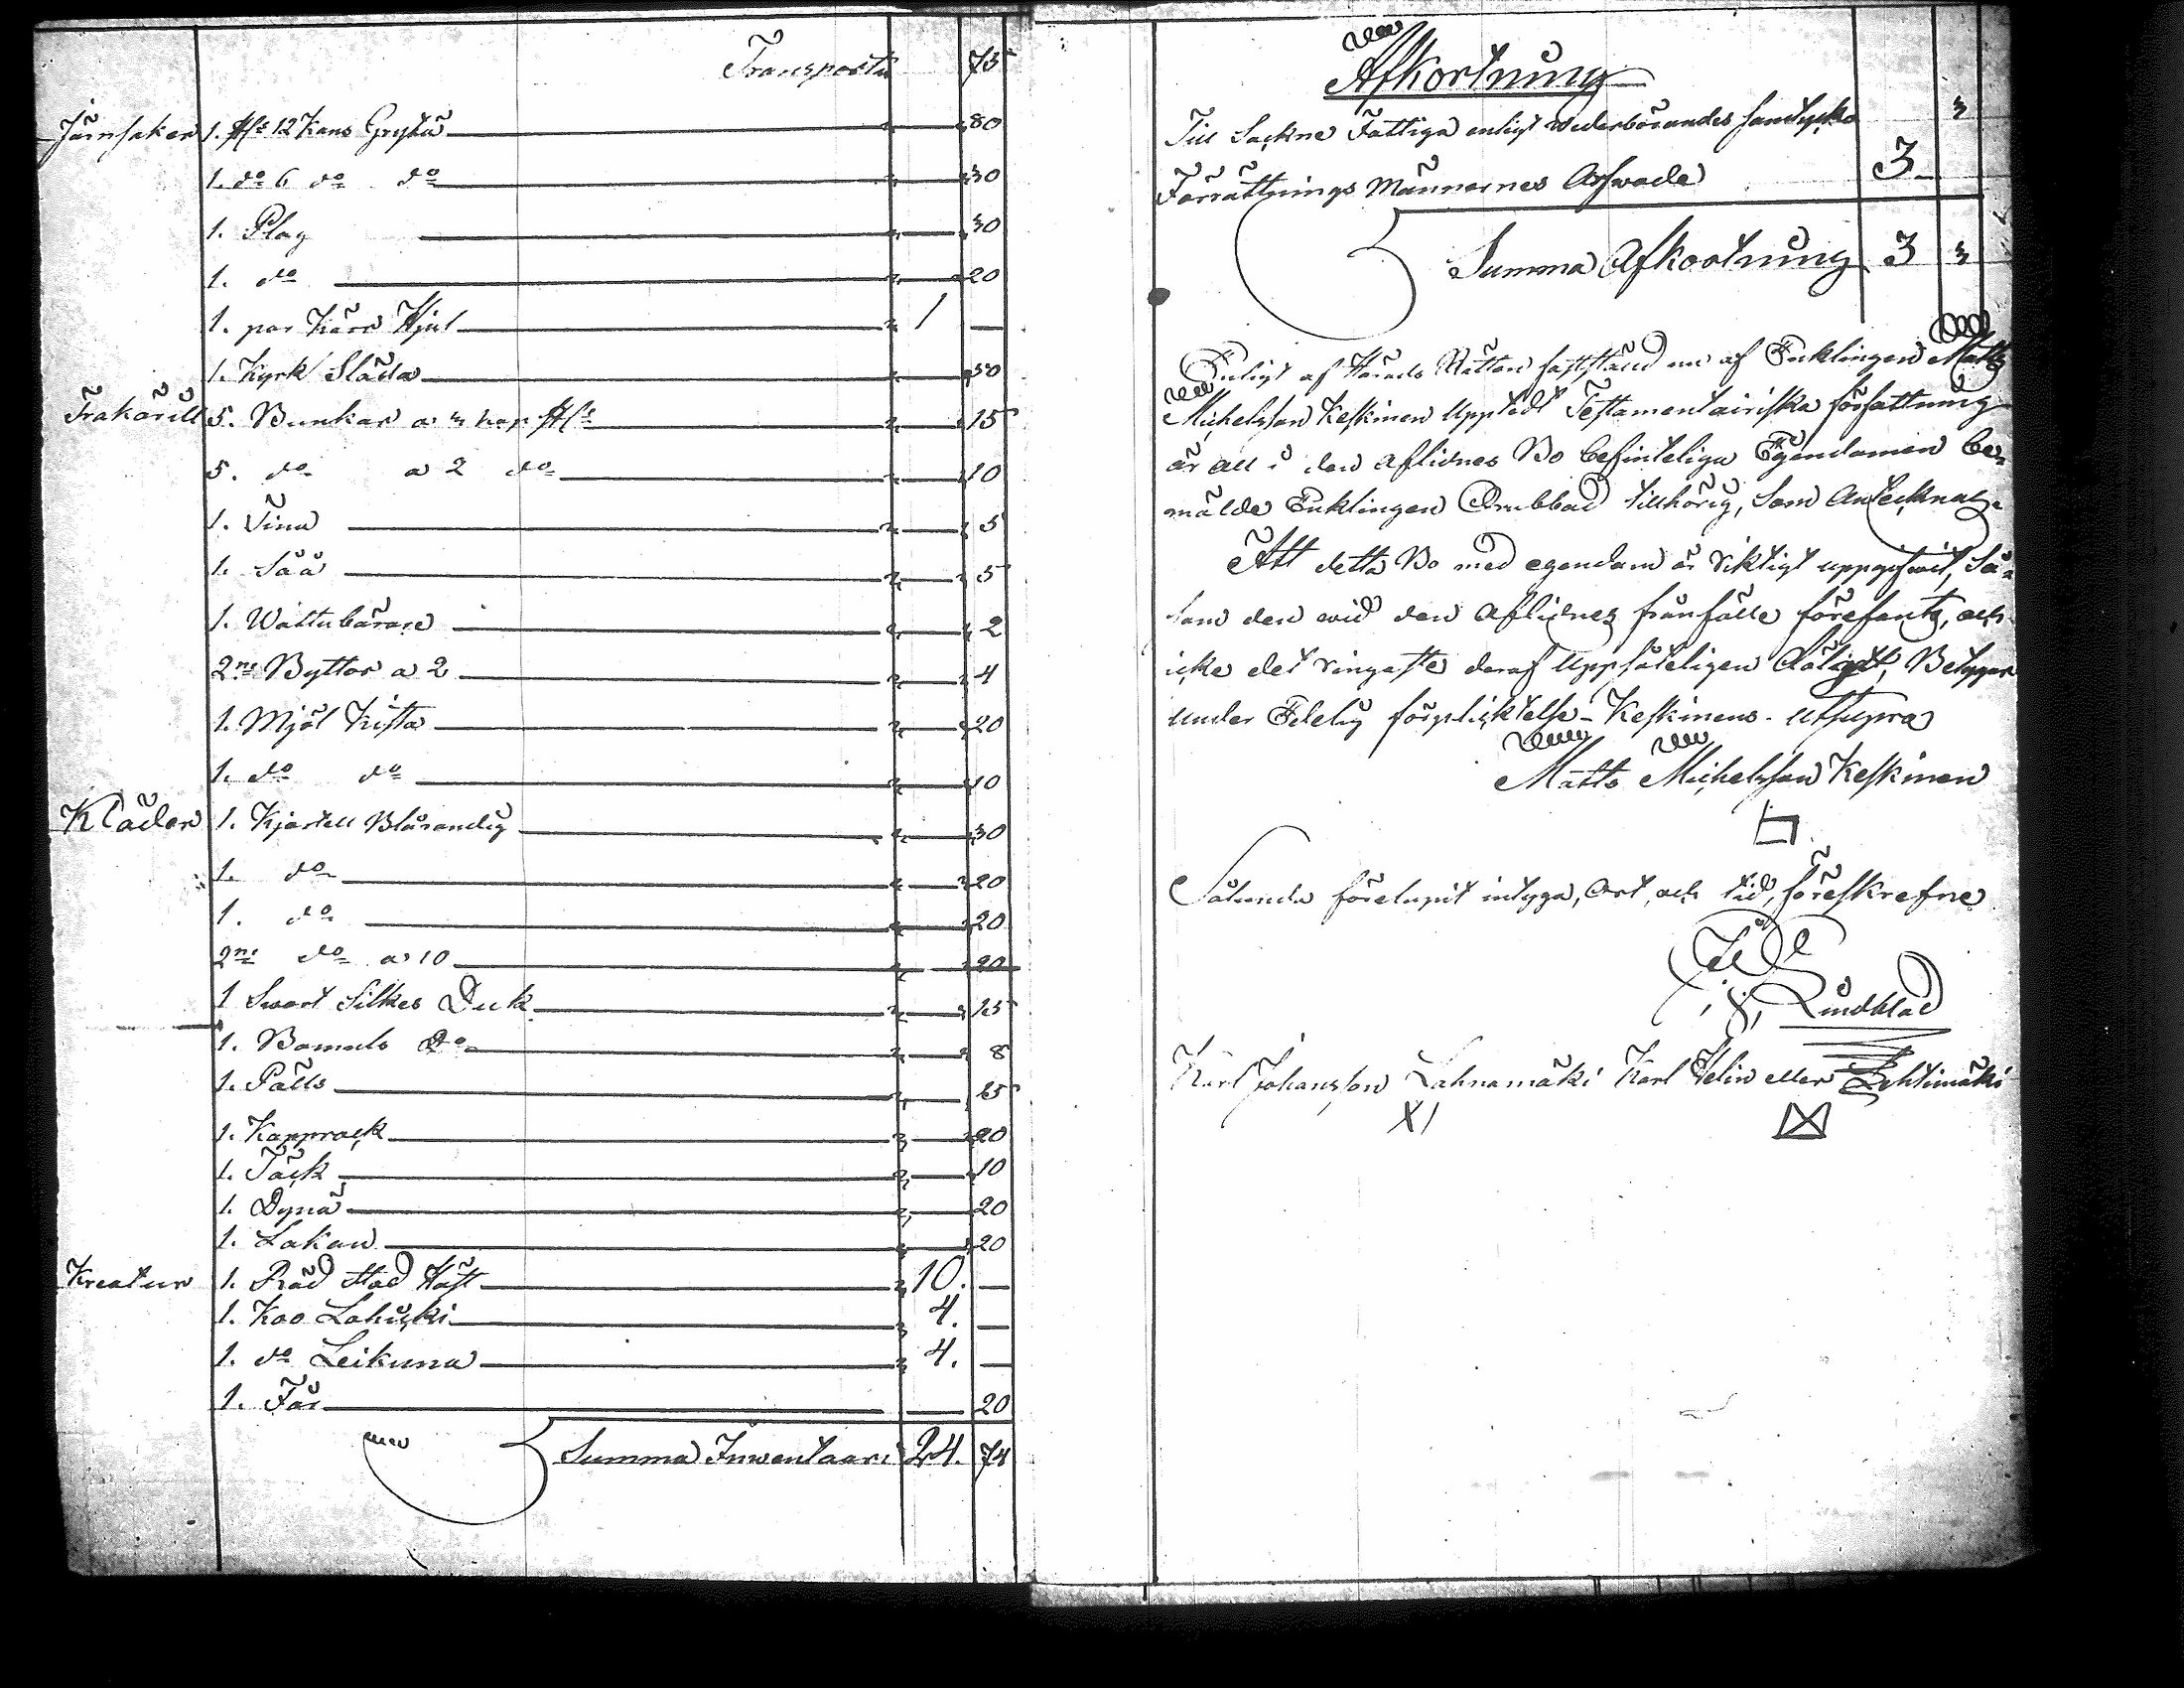 Transport 75
Järnsaker 1. st: 12 Kans Gryta " " 80
1. do 6 do do " " 30
1. Plog " " 30
1. do " " 20
1. par Kärr Hjul " 1 —
1. Kyrk Släda " " 50
Träkärill 5. Bunkar a 3 kop st: " " 15
5. do a 2 do " " 10
1. Tina " " 5
1. Såå " " 5
1. Wattubärare " " 2
2ne Byttor a 2 " " 4
1. Mjöl Kista " " 20
1. do do " " 10
Kläder 1. Kjortell Blårandig " " 30
1. do " " 20
1. do " " 20
2ne do a 10 " " 20
1 Swart Silkes Duk " " 15
1. Bomuls Do " " 8
1. Päls " " 25
1. Kapprack " " 20
1. Täck " " 10
1. Dyna " " 20
1. Lakan " " 20
Kreatur 1. Röd Häst " 10. —
1. Koo " 4. —
1. do Leikuna " 4. —
1. Får — 20
Summa Inwentaari 24. 74
Afkortning
Till Sockne Fattiga enligt wederbörandes samtycke 3
Förrättnings Männernes Arfwode 3 —
Summa Afkortning 3 3
Enligt af Härads Rätten fastständ en af Enklingen Matts
Michelsson Keskinen Uppteedt Testamentairiska författning
är all i den aflidnes Bo befinteliga Egendomen be=
mälde Enklingen Drubbad tillhörig, som Antecknas.
Att detta Bo med egendom är riktigt uppgifwit, Så=
som den wid den aflidnes frånfälle förefants, och
icke det ringaste deraf Uppsåteligen Dåligdt, Betygar
under Edelig förpligktelse - Keskinens. utsupra
Matts Michelsson Keskinen
Sålunda förelupit intyga, Ort, och tid, föreskrefne
Lindblad
Karl Johansson Lahnamäki Karl Helin eller Lehtimäki